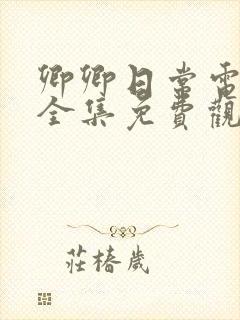 卿卿日常電
全集免費觀
莊椿歲